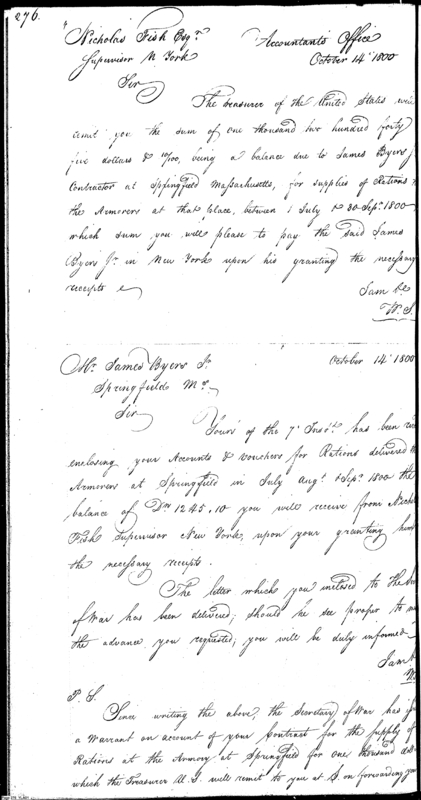 276.
Nicholas Fish Esqr. Accountants Office
Supervisor N York October 14th 1800
Sir
The treasurer of the United States will
remit you the sum of one thousand two hundred forty
five dollars & 10/100, being a balance due to James Byers J
Contractor at Springfield Massachusetts, for supplies of Rations
the Armorers at that place, between 1 July & 30 Sepr. 1800
which sum you will please to pay the said James
Byers Jr. in New York upon his granting the necessary
receipts
I am &c
W. S.
Mr. James Byers Jr. October 14th 1800
Springfield Ms.
Sir
Yours of the 7th Inst. has been
enclosing your Accounts & vouchers for Rations delivered
Armorers at Springfield in July Augt. & Sepr. 1800 the
balance of Drs 1245.10 you will receive from Nichol
Fish Supervisor New York, upon your granting him
the necessary receipts.
The letter which you inclosed to the
of War has been delivered; should he see proper to
the advance you requested; you will be duly informed
I am
P. S.
Since writing the above, the Secretary of War has
a Warrant on account of your Contract for the supply of
Rations at the Armory at Springfield for one thousand
which the Treasurer U. S. will remit to you at S. on forwarding your